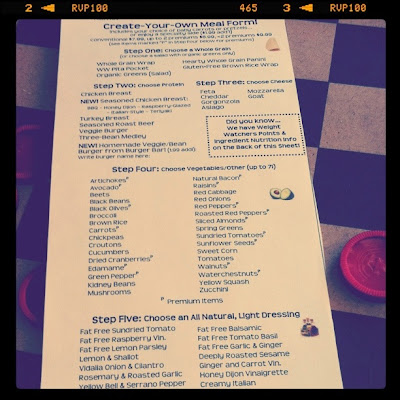 2 RVP100 465 3 RVP100
Create-Your-Own Meal Form!
Includes your choice of baby carrots or pretzels
or enjoy a specialty side ($1.99 add'l)
(see items marked "P" in step four below for premiums)
Step One: Choose a Whole Grain
Whole Grain Wrap
WW Pita Pocket
Organic Greens (Salad)
Hearty Whole Grain Panini
Gluten-Free Brown Rice Wrap
Step Two: Choose Protein
Chicken Breast
NEW! Seasoned Chicken Breast:
BBQ - Honey Dijon - Raspberry-Glazed
- Italian-Style - Teriyaki
Turkey Breast
Seasoned Roast Beef
Veggie Burger
Three-Bean Medley
NEW! Homemade Veggie/Bean
Burger From Burger Bar! (1.99 add'l)
Write burger name here:
Step Three: Choose Cheese
Feta
Cheddar
Gorgonzola
Asiago
Mozzarella
Goat
Did you know...
We have Weight
Watchers Points &
Ingredient Nutrition Info
on the Back of this Sheet!
Step Four: Choose Vegetables/Other (up to 7!)
Artichokes P
Avocado P
Beets
Black Beans
Black Olives P
Broccoli
Brown Rice
Carrots P
Chickpeas
Croutons
Cucumbers
Dried Cranberries P
Edamame P
Green Pepper P
Kidney Beans
Mushrooms
Natural Bacon P
Raisins P
Red Cabbage
Red Onions
Red Peppers P
Roasted Red Peppers P
Sliced Almonds P
Spring Greens
Sundried Tomatoes P
Sunflower Seeds P
Sweet Corn
Tomatoes
Walnuts P
Waterchestnuts P
Yellow Squash
Zucchini
P Premium Items
Step Five: Choose an All Natural, Light Dressing
Fat Free Sundried Tomato
Fat Free Raspberry Vin.
Fat Free Lemon Parsley
Lemon & Shallot
Vidalia Onion & Cilantro
Rosemary & Roasted Garlic
Yellow Bell & Serrano Pepper
Fat Free Balsamic
Fat Free Tomato Basil
Fat Free Garlic & Ginger
Deeply Roasted Sesame
Ginger and Carrot Vin.
Honey Dijon Vinaigrette
Creamy Italian